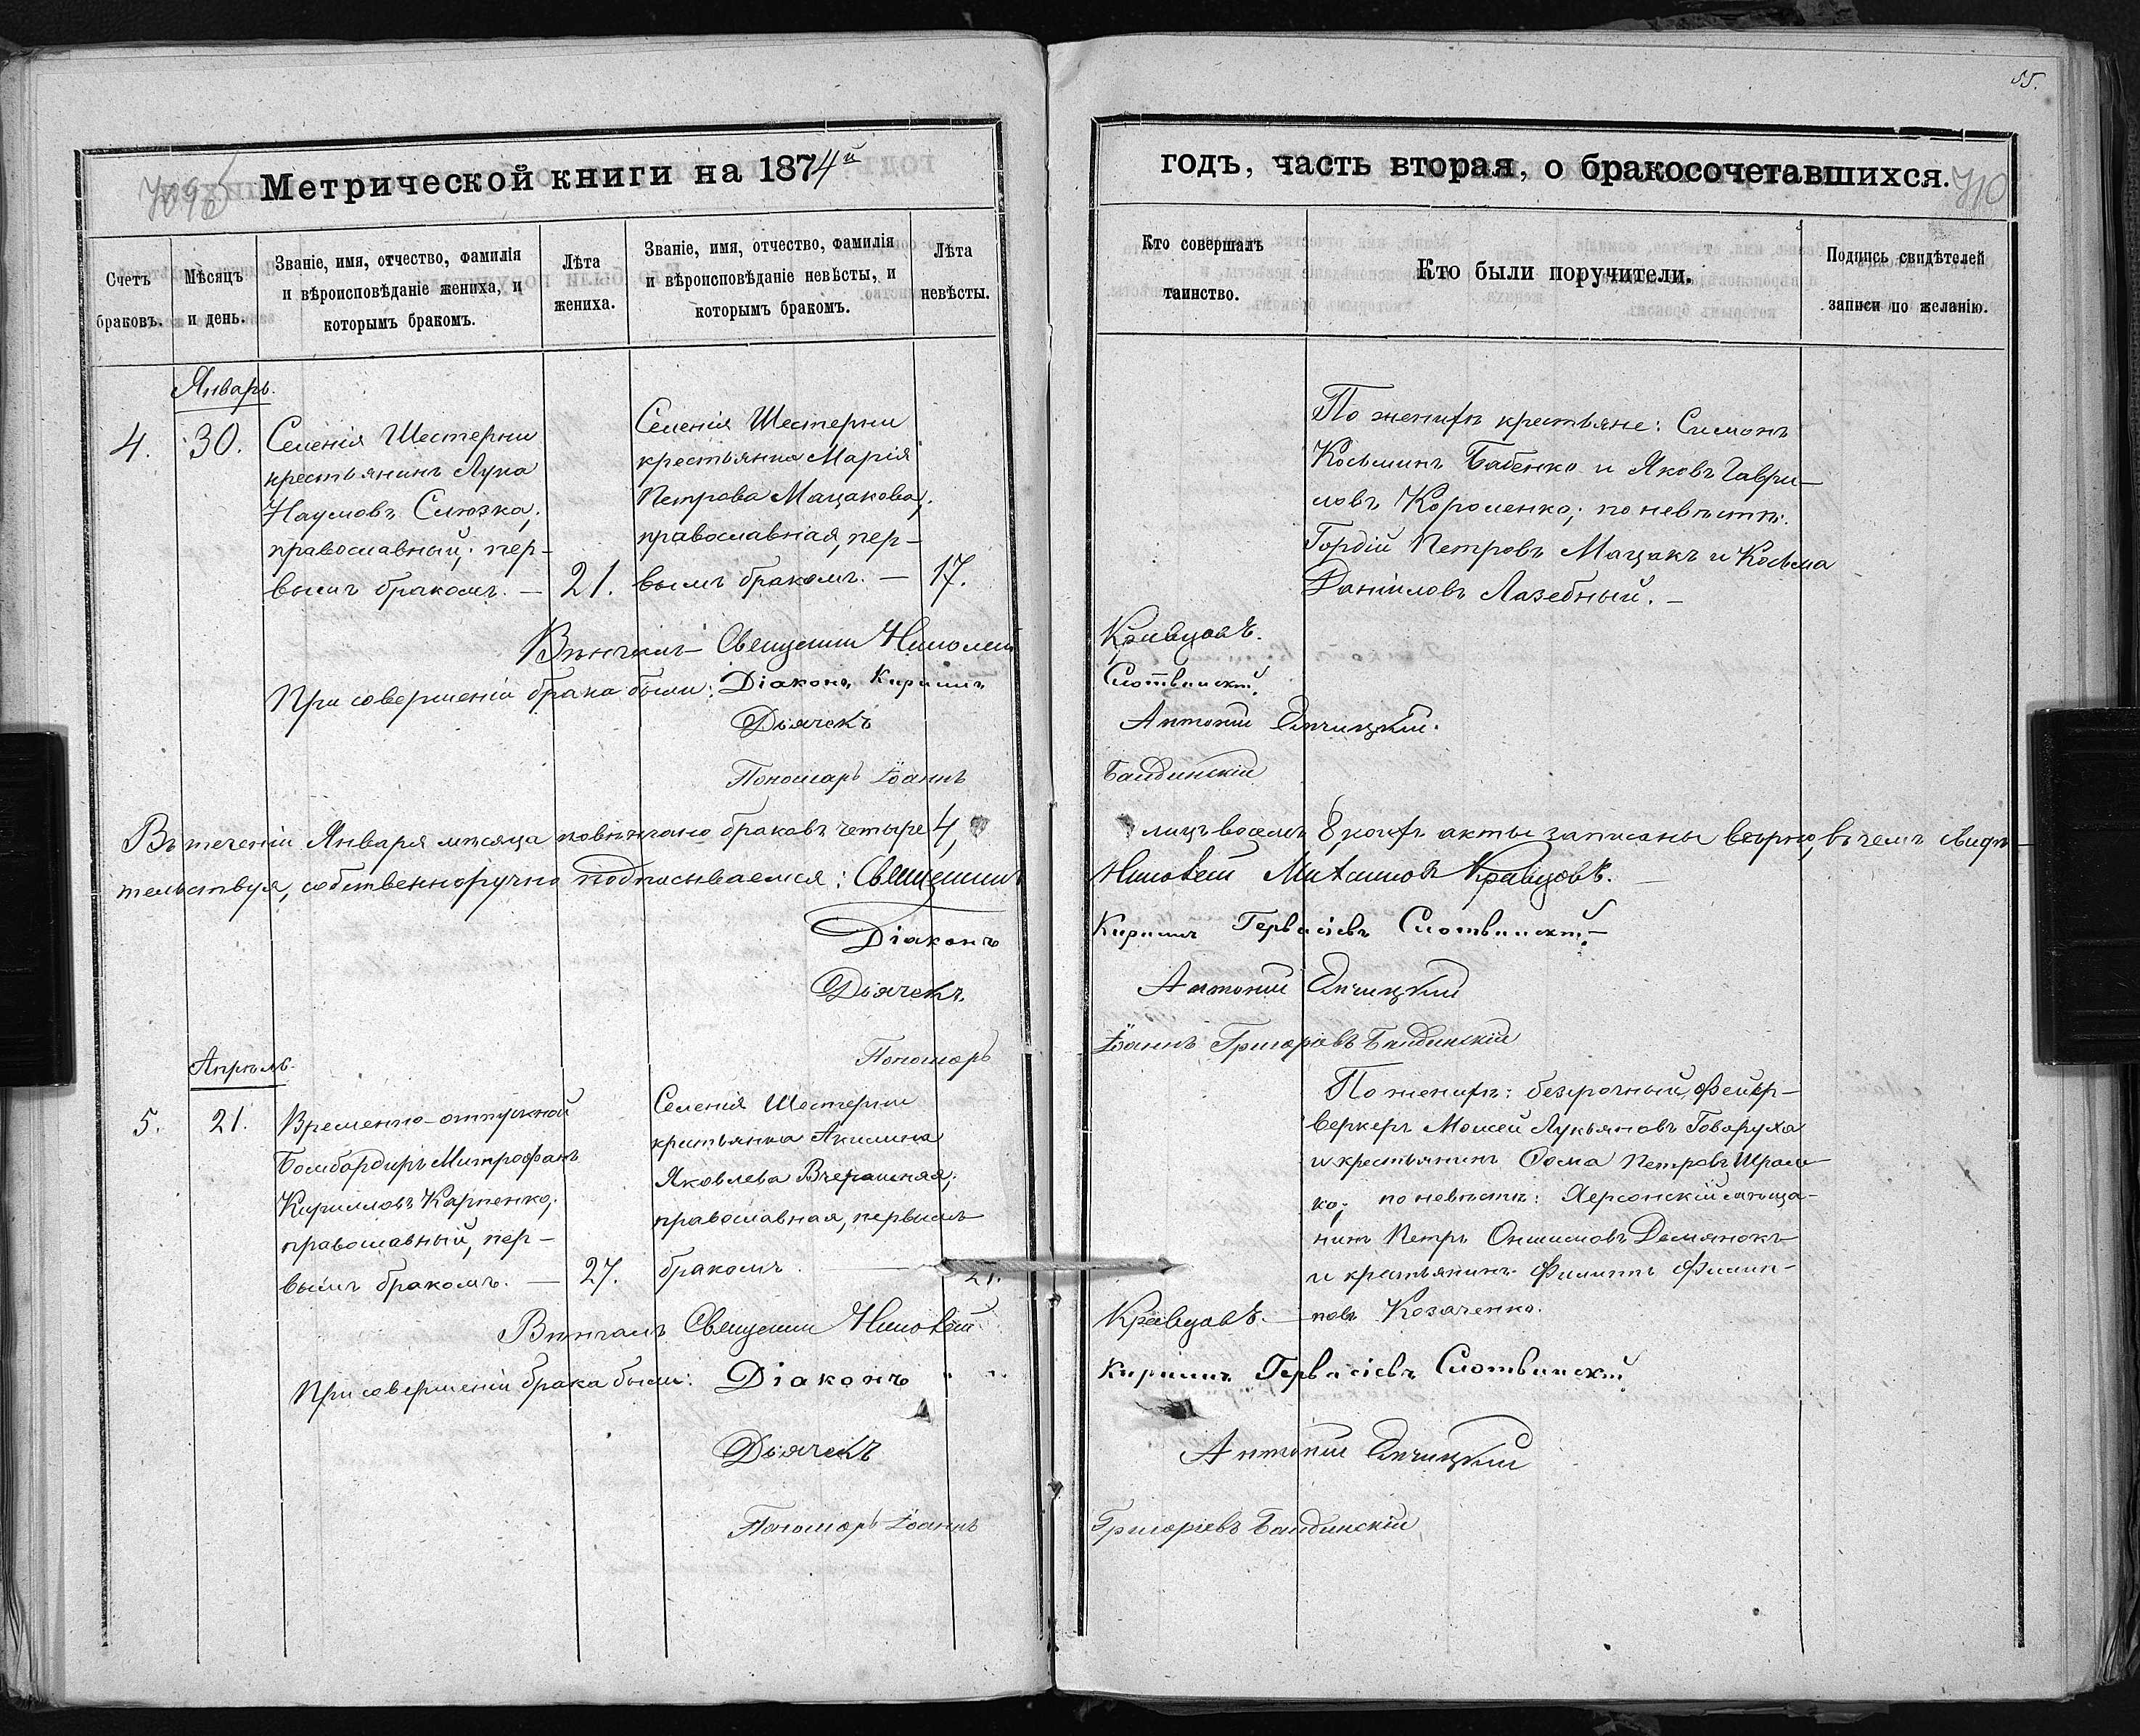 55.
Метрической книги на 1874й
годъ, часть вторая, о бракосочетавшихся.
710
Счетъ браковъ.
Мѣсяцъ и день.
Званіе, имя, отчество, фамилія
и вѣроисповѣданіе жениха, и
которымъ бракомъ.
Лѣта
жениха.
Званіе, имя, отчество, фамилія
и вѣроисповѣданіе невѣсты, и
которымъ бракомъ.
Лѣта
невѣсты.
Кто совершалъ
таинство.
Кто были поручители.
Подпись свидѣтелей
записи по желанію.
Январь.
4.
30.
Селенія Шестерни
крестьянинъ Лука
Наумовъ Слюзка;
православный; пер-
вымъ бракомъ. —
21.
Селенія Шестерни
крестьянка Марія
Петрова Мацакова;
православная, пер-
вымъ бракомъ. —
17.
По женихѣ крестьяне: Симонъ
Косьминъ Бабенко и Яковъ Гаври-
ловъ Короленко; по невѣстѣ:
Гордій Петровъ Мацакъ и Косьма
Даніиловъ Лазебный. —
Вѣнчалъ Священникъ Николай Кравцовъ.
При совершеніи брака были: Діаконъ Кириллъ Слотвинскій.
Дьячекъ Антоній
Пономарь Іоаннъ Бандинскій
Въ теченіи Января мѣсяца повѣнчано браковъ четыре 4, лицъ восемь 8, коихъ акты записаны вѣрно, въ чемъ свидѣ-
тельствуя, собственноручно подписываемся: Священникъ Николай Михаиловъ Кравцовъ.
Діаконъ Кириллъ Гервасіевъ Слотвинскій
Дьячекъ Антоній
Пономарь Іоаннъ Григоріевъ Бандинскій
Апрѣль.
5.
21.
Временно-отпускной
Бомбардиръ Митрофанъ
Кирилловъ Карпенко;
православный, пер-
вымъ бракомъ. —
27.
Селенія Шестерни
крестьянка Акилина
Яковлева Вчерашняя;
православная, первымъ
бракомъ. —
21.
По женихѣ: безсрочный Фейер-
веркеръ Моисей Лукьяновъ Говоруха
и крестьянинъ Ѳома Петровъ Шрам-
ко; по невѣстѣ: Херсонскій мѣща-
нинъ Петръ Онисимовъ Демянокъ
и крестьянинъ Филиппъ Филип-
повъ Козаченко.
Вѣнчалъ Священникъ Николай Кравцовъ.
При совершеніи брака были: Діаконъ Кириллъ Гервасіевъ Слотвинскій
Дьячекъ Антоній
Пономарь Іоаннъ Григоріевъ Бандинскій